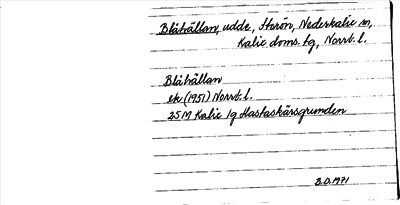 Blåhällan, udde, Storön, Nederkalix sn,
Kalix doms. tg, Norrb. l.
Blåhällan
ek (1951) Norrb. l.
25 M Kalix lg Hastaskärsgrunden
B.D. 1971